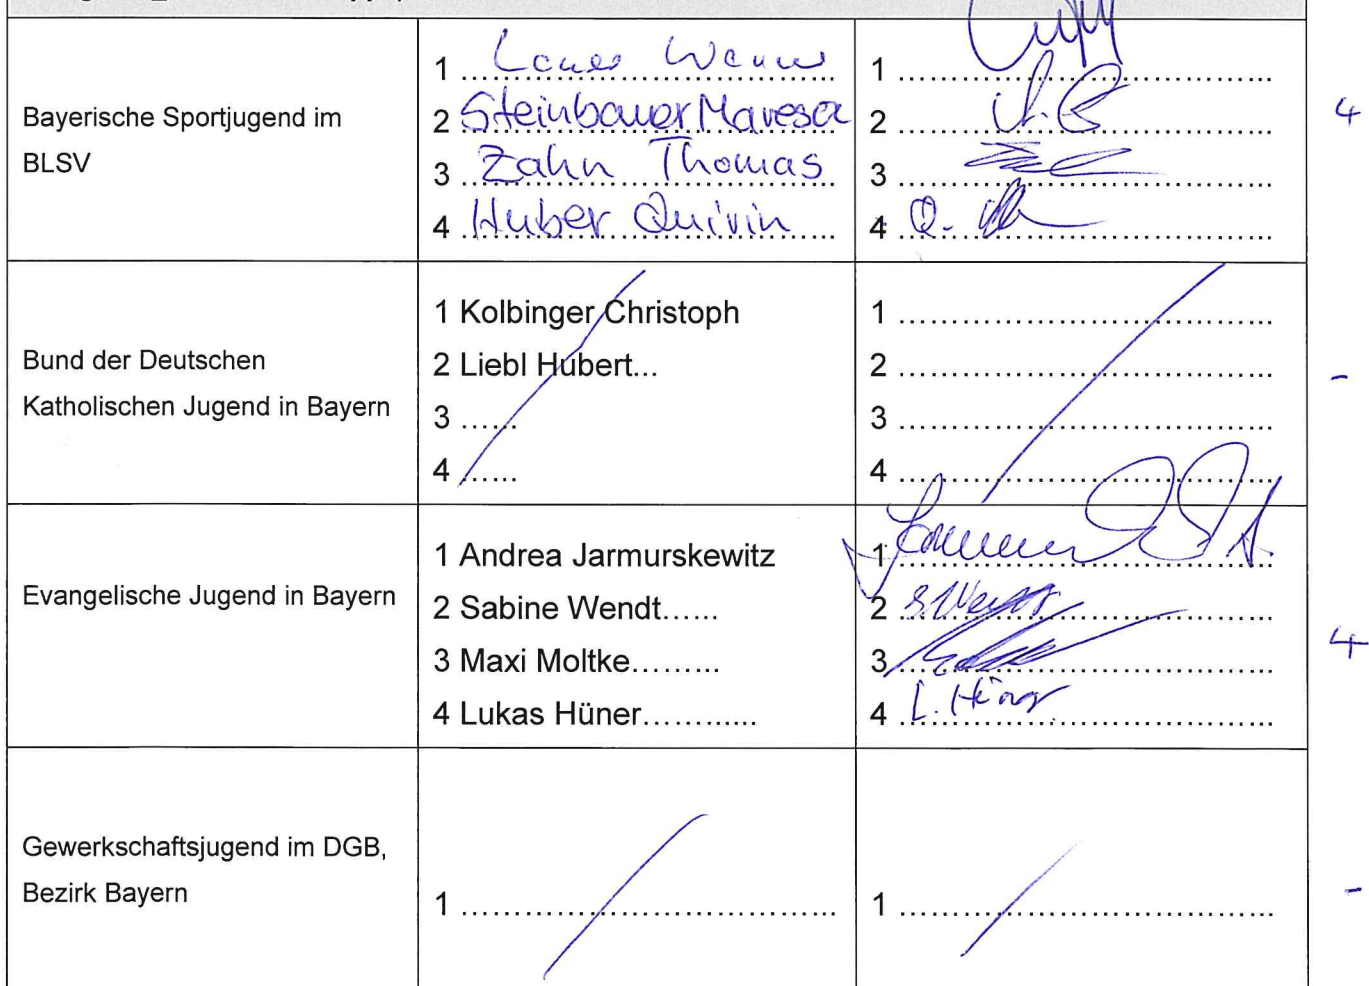 Bayerische Sportjugend im
BLSV
1
2 Steinbauer Maresa
3 Zahn Thomas
4 Huber Quirin
1
2
3
4 Q.
4
Bund der Deutschen
Katholischen Jugend in Bayern
1 Kolbinger Christoph
2 Liebl Hubert...
3 ......
4 ......
1
2
3
4
-
Evangelische Jugend in Bayern
1 Andrea Jarmurskewitz
2 Sabine Wendt......
3 Maxi Moltke.........
4 Lukas Hüner............
1
2 S. Wendt
3
4 L. Hüner
4
Gewerkschaftsjugend im DGB,
Bezirk Bayern
1
1
-